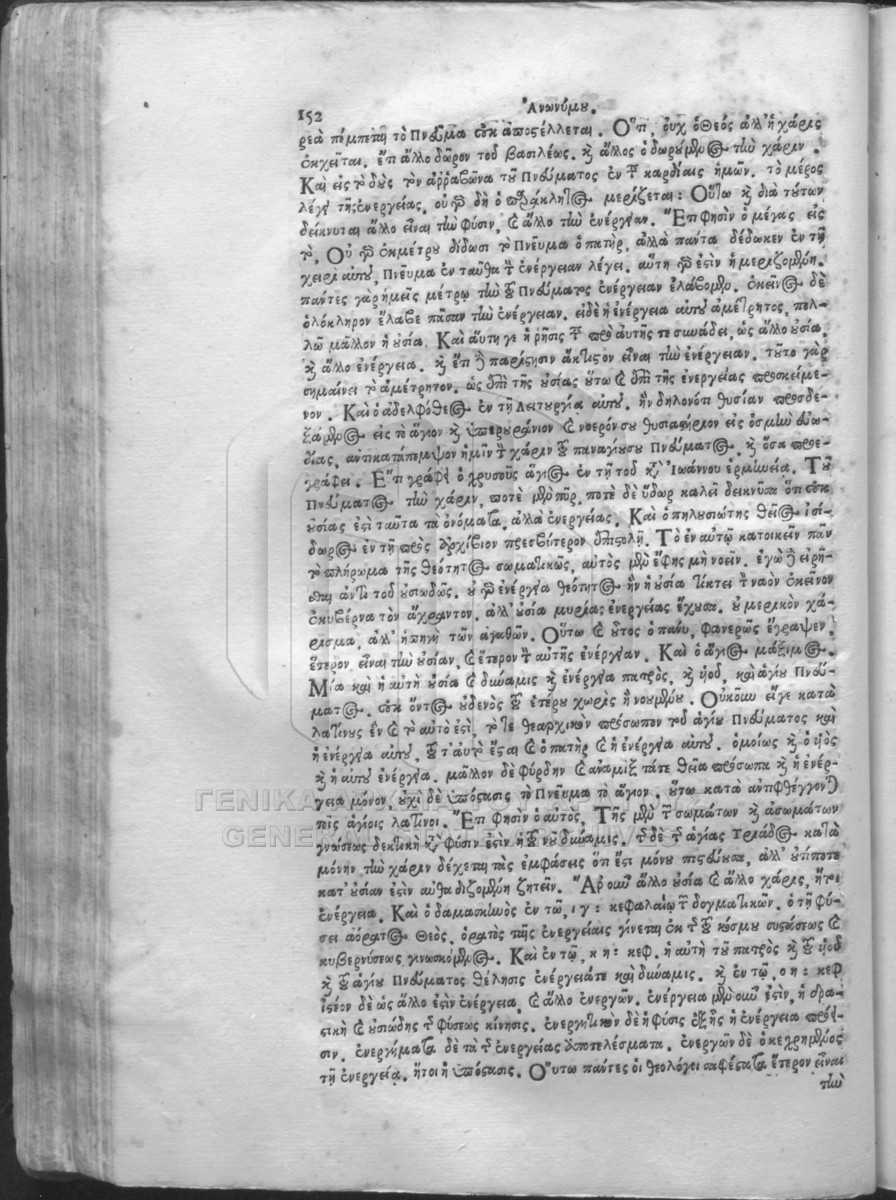 152
Ἀνωνύμου.
ρεὰ πέμπεται τὸ Πνεῦμα οὐκ ἀποστέλλεται. Ὅτι, οὐχ ὁ Θεός ἀλλ' ἡ χάρις
ἐκχεῖται. ἔτι ἄλλο δῶρον τοῦ βασιλέως. καὶ ἄλλος ὁ δωρούμενος τὴν χάριν.
Καὶ εἰς τὸ δοὺς τὸν ἀρραβῶνα τοῦ Πνεύματος ἐν ταῖς καρδίαις ἡμῶν. τὸ μέρος
λέγει τῆς ἐνεργείας, οὐ γὰρ δὴ ὁ παράκλητος μερίζεται: Οὕτω καὶ διὰ τούτων
δείκνυται ἄλλο εἶναι τὴν φύσιν, καὶ ἄλλο τὴν ἐνέργειαν. Ἔτι φησὶν ὁ μέγας εἰς
τὸ, Οὐ γὰρ ἐκ μέτρου δίδωσι τὸ Πνεῦμα ὁ πατὴρ, ἀλλὰ πάντα δέδωκεν ἐν τῇ
χειρὶ αὐτοῦ, Πνεῦμα ἐνταῦθα τὴν ἐνέργειαν λέγει. αὕτη γὰρ ἐστὶν ἡ μεριζομένη.
πάντες γὰρ ἡμεῖς μέτρῳ τὴν τοῦ Πνεύματος ἐνέργειαν ἐλάβομεν. ἐκεῖνος δὲ
ὁλόκληρον ἔλαβε πᾶσαν τὴν ἐνέργειαν. εἰ δὲ ἡ ἐνέργεια αὐτοῦ ἀμέτρητος, πολ-
λῷ μᾶλλον ἡ οὐσία. Καὶ αὕτη γε ἡ ῥῆσις ταῖς πρὸ αὐτῆς τε συνάδει, ὡς ἄλλο οὐσία,
καὶ ἄλλο ἐνέργεια. καὶ ἔτι γε παρίστησιν ἄκτιστον εἶναι τὴν ἐνέργειαν. τοῦτο γὰρ
σημαίνει τὸ ἀμέτρητον. ὡς ἐπὶ τῆς οὐσίας οὕτω καὶ ἐπὶ τῆς ἐνεργείας προσκείμε-
νον. Καὶ ὁ ἀδελφόθεος ἐν τῇ Λειτουργίᾳ αὐτοῦ. ἣν δηλονότι θυσίαν προσδε-
ξάμενος εἰς τὸ ἅγιον καὶ ὑπερουράνιον καὶ νοερόν σου θυσιαστήριον εἰς ὀσμὴν εὐω-
δίας, ἀντικατάπεμψον ἡμῖν τὴν χάριν τοῦ παναγίου σου Πνεύματος, καὶ ὅσα προε-
γράφει. Ἔτι γράφει ὁ χρυσοῦς ἅγιος ἐν τῇ τοῦ κατὰ Ἰωάννου ἑρμηνείᾳ. Τοῦ
Πνεύματος τὴν χάριν, ποτὲ μὲν πῦρ, ποτὲ δὲ ὕδωρ καλεῖ δεικνῦσα ὅτι οὐκ
οὐσίας ἐστὶ ταῦτα τὰ ὀνόματα, ἀλλὰ ἐνεργείας. Καὶ ὁ πηλουσιώτης θεῖος ἰσί-
δωρος ἐν τῇ πρὸς ἀρχίβιον πρεσβύτερον ἐπιστολῇ. Τὸ ἐν αὐτῷ κατοικεῖν πᾶν
τὸ πλήρωμα τῆς θεότητος σωματικῶς, αὐτὸς μὲν ἔφης μὴ νοεῖν. ἐγὼ δὲ εἰρῆ-
σθαι ἀντὶ τοῦ οὐσιωδῶς. οὐ γὰρ ἐνέργεια θεότητος ἦν ἡ οὐσία τίκτει τὸν ναὸν ἐκεῖνον
ἐκυβέρνα τὸν ἄχραντον. ἀλλ' οὐσία μυρίας ἐνεργείας ἔχουσα. οὐ μερικὸν χά-
ρισμα, ἀλλ' ἡ πηγὴ τῶν ἀγαθῶν. Οὕτω καὶ οὗτος ὁ πάνυ, φανερῶς ἔγραψεν,
ἕτερον εἶναι τὴν οὐσίαν, καὶ ἕτερον τὴν αὐτῆς ἐνέργειαν. Καὶ ὁ ἅγιος μάξιμος.
Μία καὶ ἡ αὐτὴ οὐσία καὶ δύναμις καὶ ἐνέργεια πατρὸς, καὶ υἱοῦ, καὶ ἁγίου Πνεύ-
ματος. οὐκ ὄντος οὐδενὸς τοῦ ἑτέρου χωρὶς ἢ νοουμένου. Οὐκοῦν εἴγε κατὰ
λατίνους ἓν καὶ τὸ αὐτό ἐστὶ, τό τε θεαρχικὸν πρόσωπον τοῦ ἁγίου Πνεύματος καὶ
ἡ ἐνέργεια αὐτοῦ, τοῦτ' αὐτὸ ἔσται καὶ ὁ πατὴρ καὶ ἡ ἐνέργεια αὐτοῦ. ὁμοίως καὶ ὁ υἱὸς
καὶ ἡ αὐτοῦ ἐνέργεια. μᾶλλον δὲ φύρδην καὶ ἀναμὶξ τά τε θεῖα πρόσωπα καὶ ἡ ἐνέρ-
γεια μόνον, οὐχὶ δὲ ὑπόστασις τὸ Πνεῦμα τὸ ἅγιον. οὕτω κατὰ ἀντιφθέγγονται
τοῖς ἁγίοις λατῖνοι. Ἔτι φησὶν ὁ αὐτὸς, Τῆς μὲν τῶν σωμάτων καὶ ἀσωμάτων
γνώσεως δεκτικὴ κατὰ φύσιν ἐστὶν ἡ τοῦ νοῦ δύναμις. τῆς δὲ τῆς ἁγίας τριάδος κατὰ
μόνην τὴν χάριν δέχεται τὰς ἐμφάσεις ὅτι ἔστι μόνου πιστεύουσα, ἀλλ' οὔτιποτε
κατ' οὐσίαν ἐστὶν αὐθαδιζομένη ζητεῖν. Ἄρ' οὖν ἄλλο οὐσία καὶ ἄλλο χάρις, ἤτοι
ἐνέργεια. Καὶ ὁ δαμασκηνὸς ἐν τῷ, ιγ: κεφαλαίῳ τῶν δογματικῶν. ὁ τῇ φύ-
σει ἀόρατος Θεὸς, ὁρατὸς ταῖς ἐνεργείαις γίνεται ἐκ τῆς τοῦ κόσμου συστάσεως καὶ
κυβερνήσεως γινωσκόμενος. Καὶ ἐν τῷ, κη: κεφ. ἡ αὐτὴ τοῦ πατρὸς καὶ τοῦ υἱοῦ
καὶ τοῦ ἁγίου Πνεύματος θέλησις ἐνέργειά τε καὶ δύναμις. καὶ ἐν τῷ, οη: κεφ
ἰστέον δὲ ὡς ἄλλο ἐστὶν ἐνέργεια, καὶ ἄλλο ἐνεργῶν. ἐνέργεια μὲν οὖν ἐστὶν, ἡ δρα-
στικὴ καὶ οὐσιώδης τῆς φύσεως κίνησις. ἐνεργητικὸν δὲ ἡ φύσις ἐξ ἧς ἡ ἐνέργεια πρόει-
σιν, ἐνεργήματα δὲ τὰ τῆς ἐνεργείας ἀποτελέσματα. ἐνεργῶν δὲ ὁ κεχρημένος
τῇ ἐνεργείᾳ, ἤτοι ἡ ὑπόστασις. Οὕτω πάντες οἱ θεολόγοι σαφέστατα ἕτερον εἶναι
τὴν